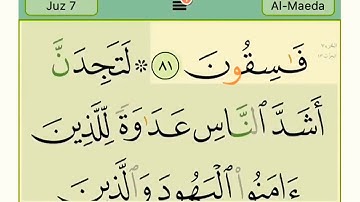 Juz 7 Al-Maeda
فَـٰسِقُونَ ٨١ ۞ لَتَجِدَنَّ
أَشَدَّ ٱلنَّاسِ عَدَٰوَةً لِّلَّذِينَ
ءَامَنُوا۟ ٱلْيَهُودَ وَٱلَّذِينَ